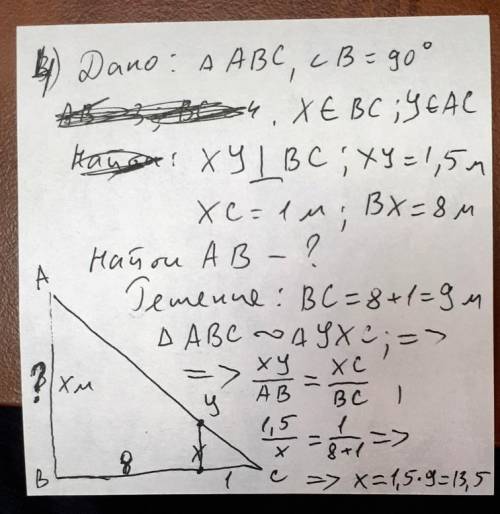 Дано: △ABC, ∠B = 90°
X ∈ BC; Y ∈ AC
XY ⊥ BC; XY = 1,5 м
XC = 1 м; BX = 8 м
Найти AB - ?
Решение: BC = 8 + 1 = 9 м
△ABC ∾ △YXC; =>
=> XY/AB = XC/BC,
1,5/x = 1/(8+1) =>
=> x = 1,5 · 9 = 13,5
A
? x м
Y
B 8 X 1 C